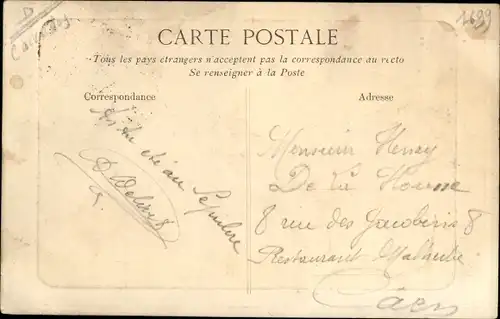 D
Calvados
1689
CARTE POSTALE
Tous les pays étrangers n'acceptent pas la correspondance au recto
Se renseigner à la Poste
Correspondance
Adresse
As tu été au Sépulcre
Monsieur Henry
De La Housse
8 rue des Jacobins 8
Restaurant Malherbe
Caen